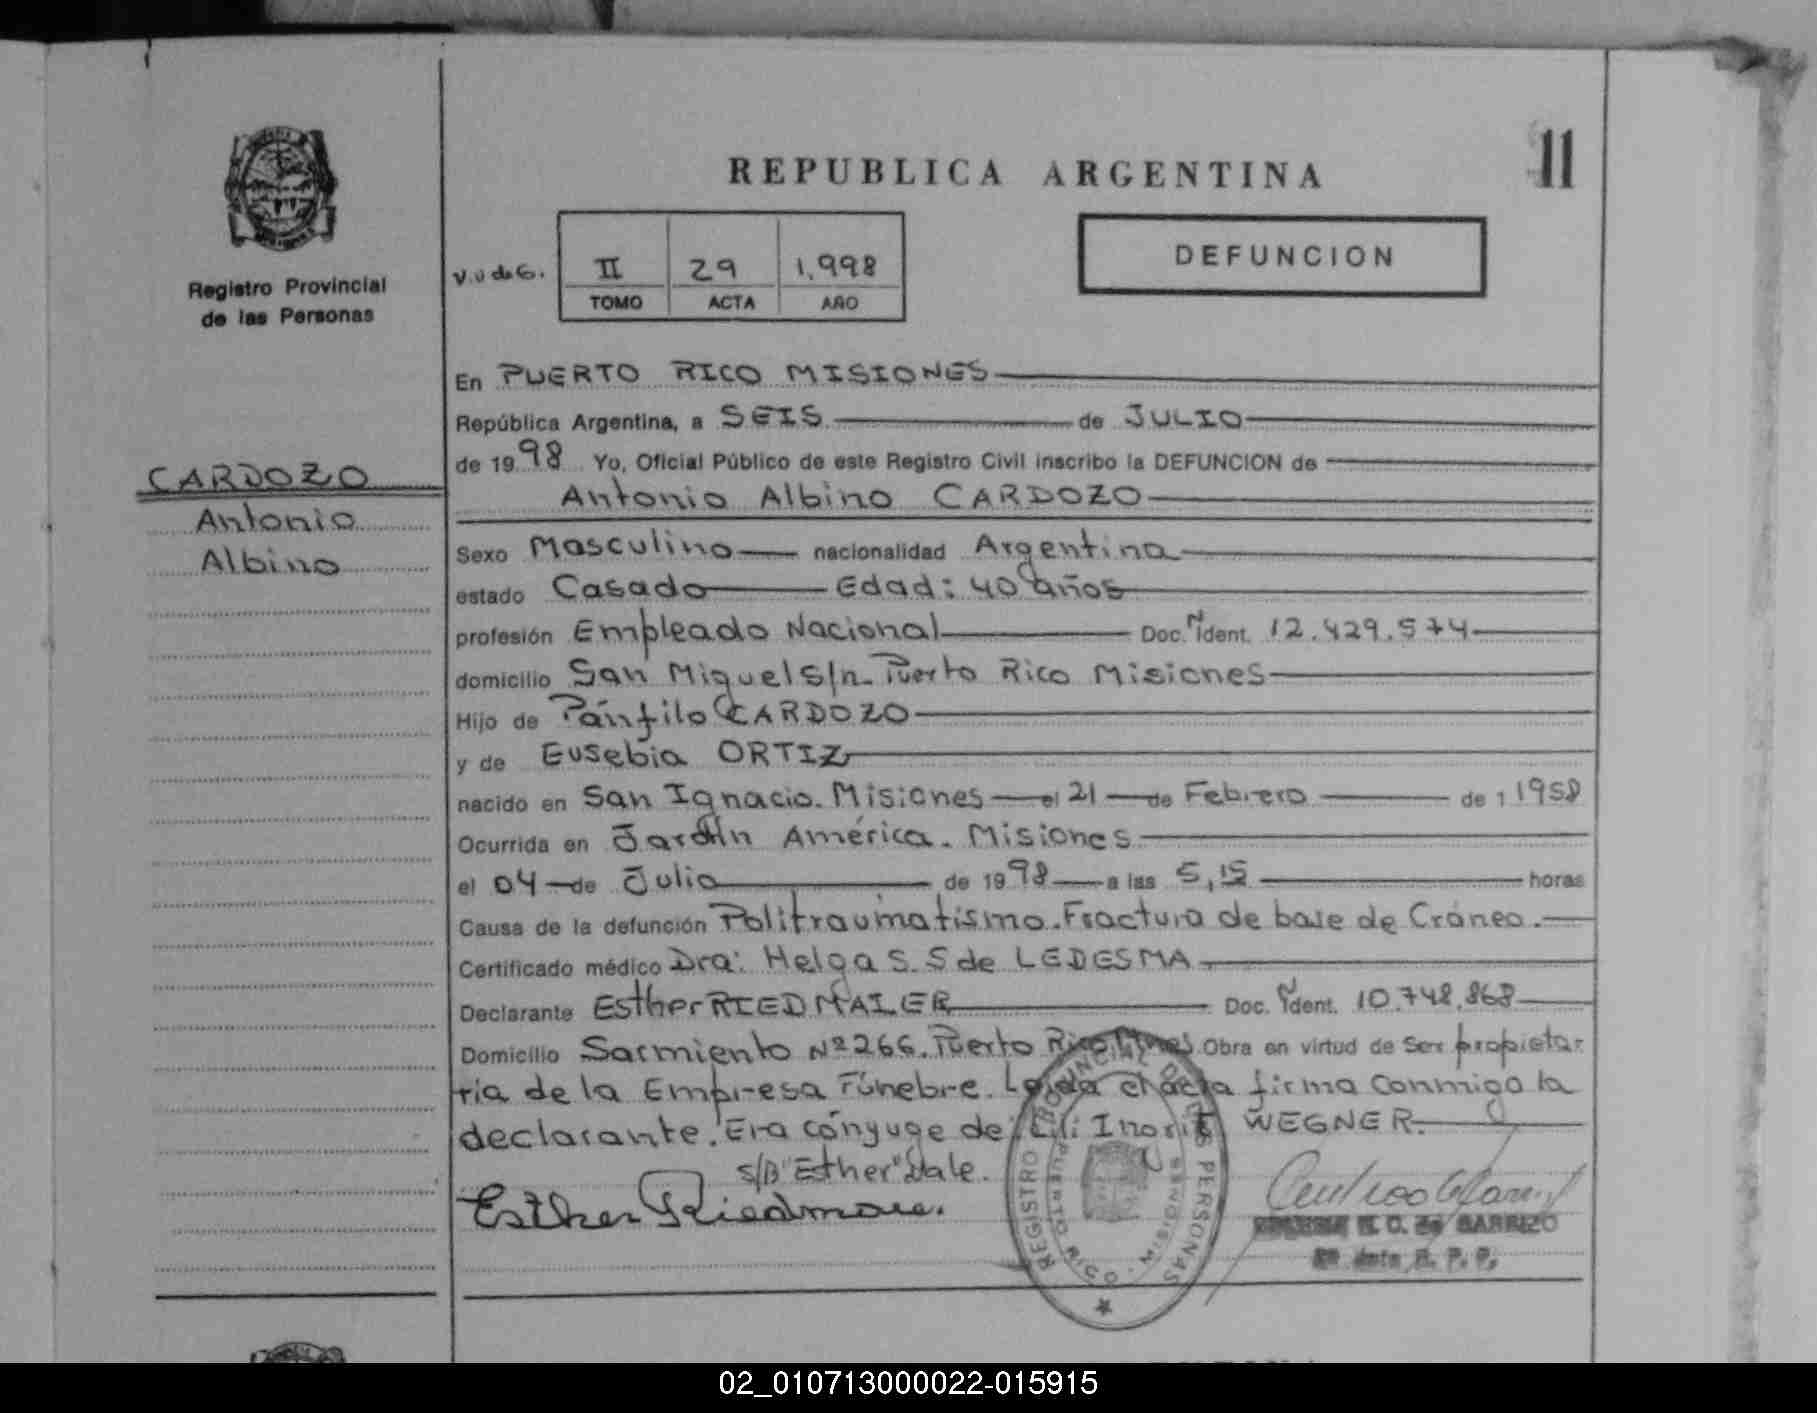 11
REPUBLICA ARGENTINA
DEFUNCION
Registro Provincial
de las Personas
II 29 1.998
TOMO ACTA AÑO
CARDOZO
Antonio
Albino
En PUERTO RICO MISIONES
República Argentina, a SEIS de JULIO
de 1998 Yo, Oficial Público de este Registro Civil inscribo la DEFUNCION de
Antonio Albino CARDOZO
Sexo Masculino nacionalidad Argentina
estado Casado Edad: 40 años
profesión Empleado Nacional Doc. Nº Ident. 12.429.574
domicilio San Miguel S/n. Puerto Rico Misiones
Hijo de Pánfilo CARDOZO
y de Eusebia ORTIZ
nacido en San Ignacio. Misiones el 21 de Febrero de 1 1958
Ocurrida en Jardín América. Misiones
el 04 de Julio de 1998 a las 5,15 horas
Causa de la defunción Politraumatismo. Fractura de base de Cráneo.
Certificado médico Dra: Helga S. S de LEDESMA
Declarante Esther RIEDMAIER Doc. Nº Ident. 10.748.868
Domicilio Sarmiento Nº 266. Puerto Rico Mnes. Obra en virtud de Ser propieta-
ria de la Empresa Fúnebre. Leida el acta firma conmigo la
declarante. Era cónyuge de: Lili Inorit WEGNER.
S/B "Esther" Vale.
Esther Riedmaier
REGISTRO PROVINCIAL DE LAS PERSONAS
PUERTO RICO - MISIONES
R. C. de BARRIZO
R. P. P.
02_010713000022-015915